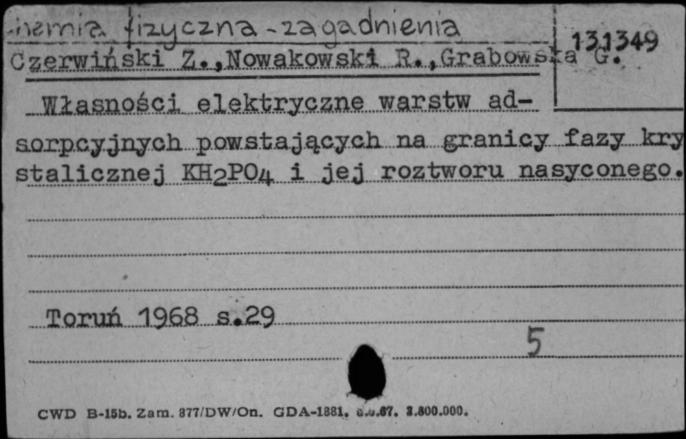 hemia fizyczna - zagadnienia
131349
Czerwiński Z.,Nowakowski R.,Grabowska G.
Własności elektryczne warstw ad-
sorpcyjnych powstających na granicy fazy kry
stalicznej KH2PO4 i jej roztworu nasyconego.
Toruń 1968 s.29
5
CWD B-15b. Zam. 877/DW/On. GDA-1881. 3.800.000.